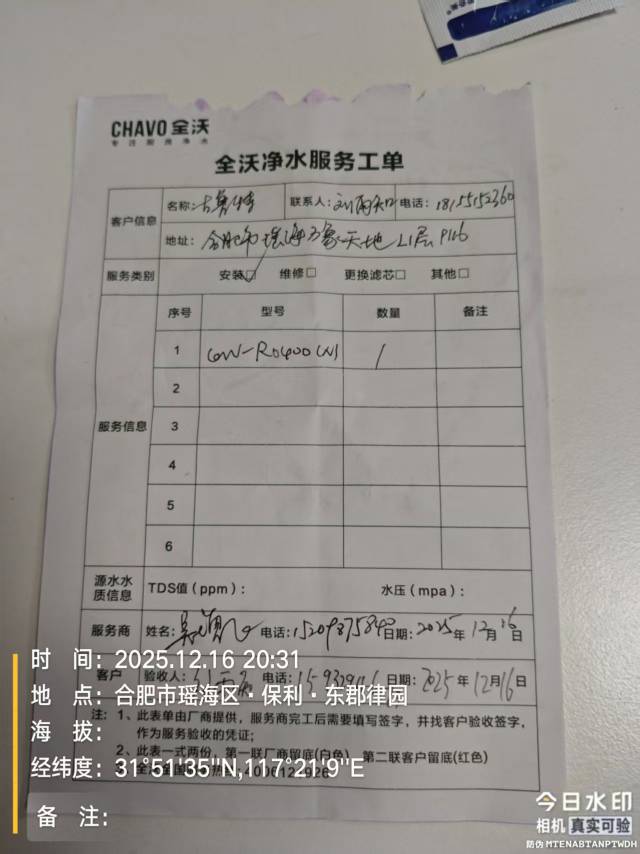 CHAVO 全沃
专注厨房净水
全沃净水服务工单
客户信息
名称: 联系人: 电话: 18155152360
地址: 合肥市瑶海万象天地L1层P116
服务类别 安装☑ 维修□ 更换滤芯□ 其他□
服务信息
序号 型号 数量 备注
1 1
2
3
4
5
6
源水水质信息 TDS值(ppm): 水压(mpa):
服务商 姓名: 电话: 日期: 2025年12月16日
客户 验收人: 电话: 日期: 2025年12月16日
注: 1、此表单由厂商提供,服务商完工后需要填写签字,并找客户验收签字,
作为服务验收的凭证;
2、此表一式两份,第一联厂商留底(白色) 第二联客户留底(红色)
时 间: 2025.12.16 20:31
地 点: 合肥市瑶海区·保利·东郡律园
海 拔:
经纬度: 31°51'35"N,117°21'9"E
备 注:
今日水印
相机 真实可验
防伪 MTENABTANPTWDH